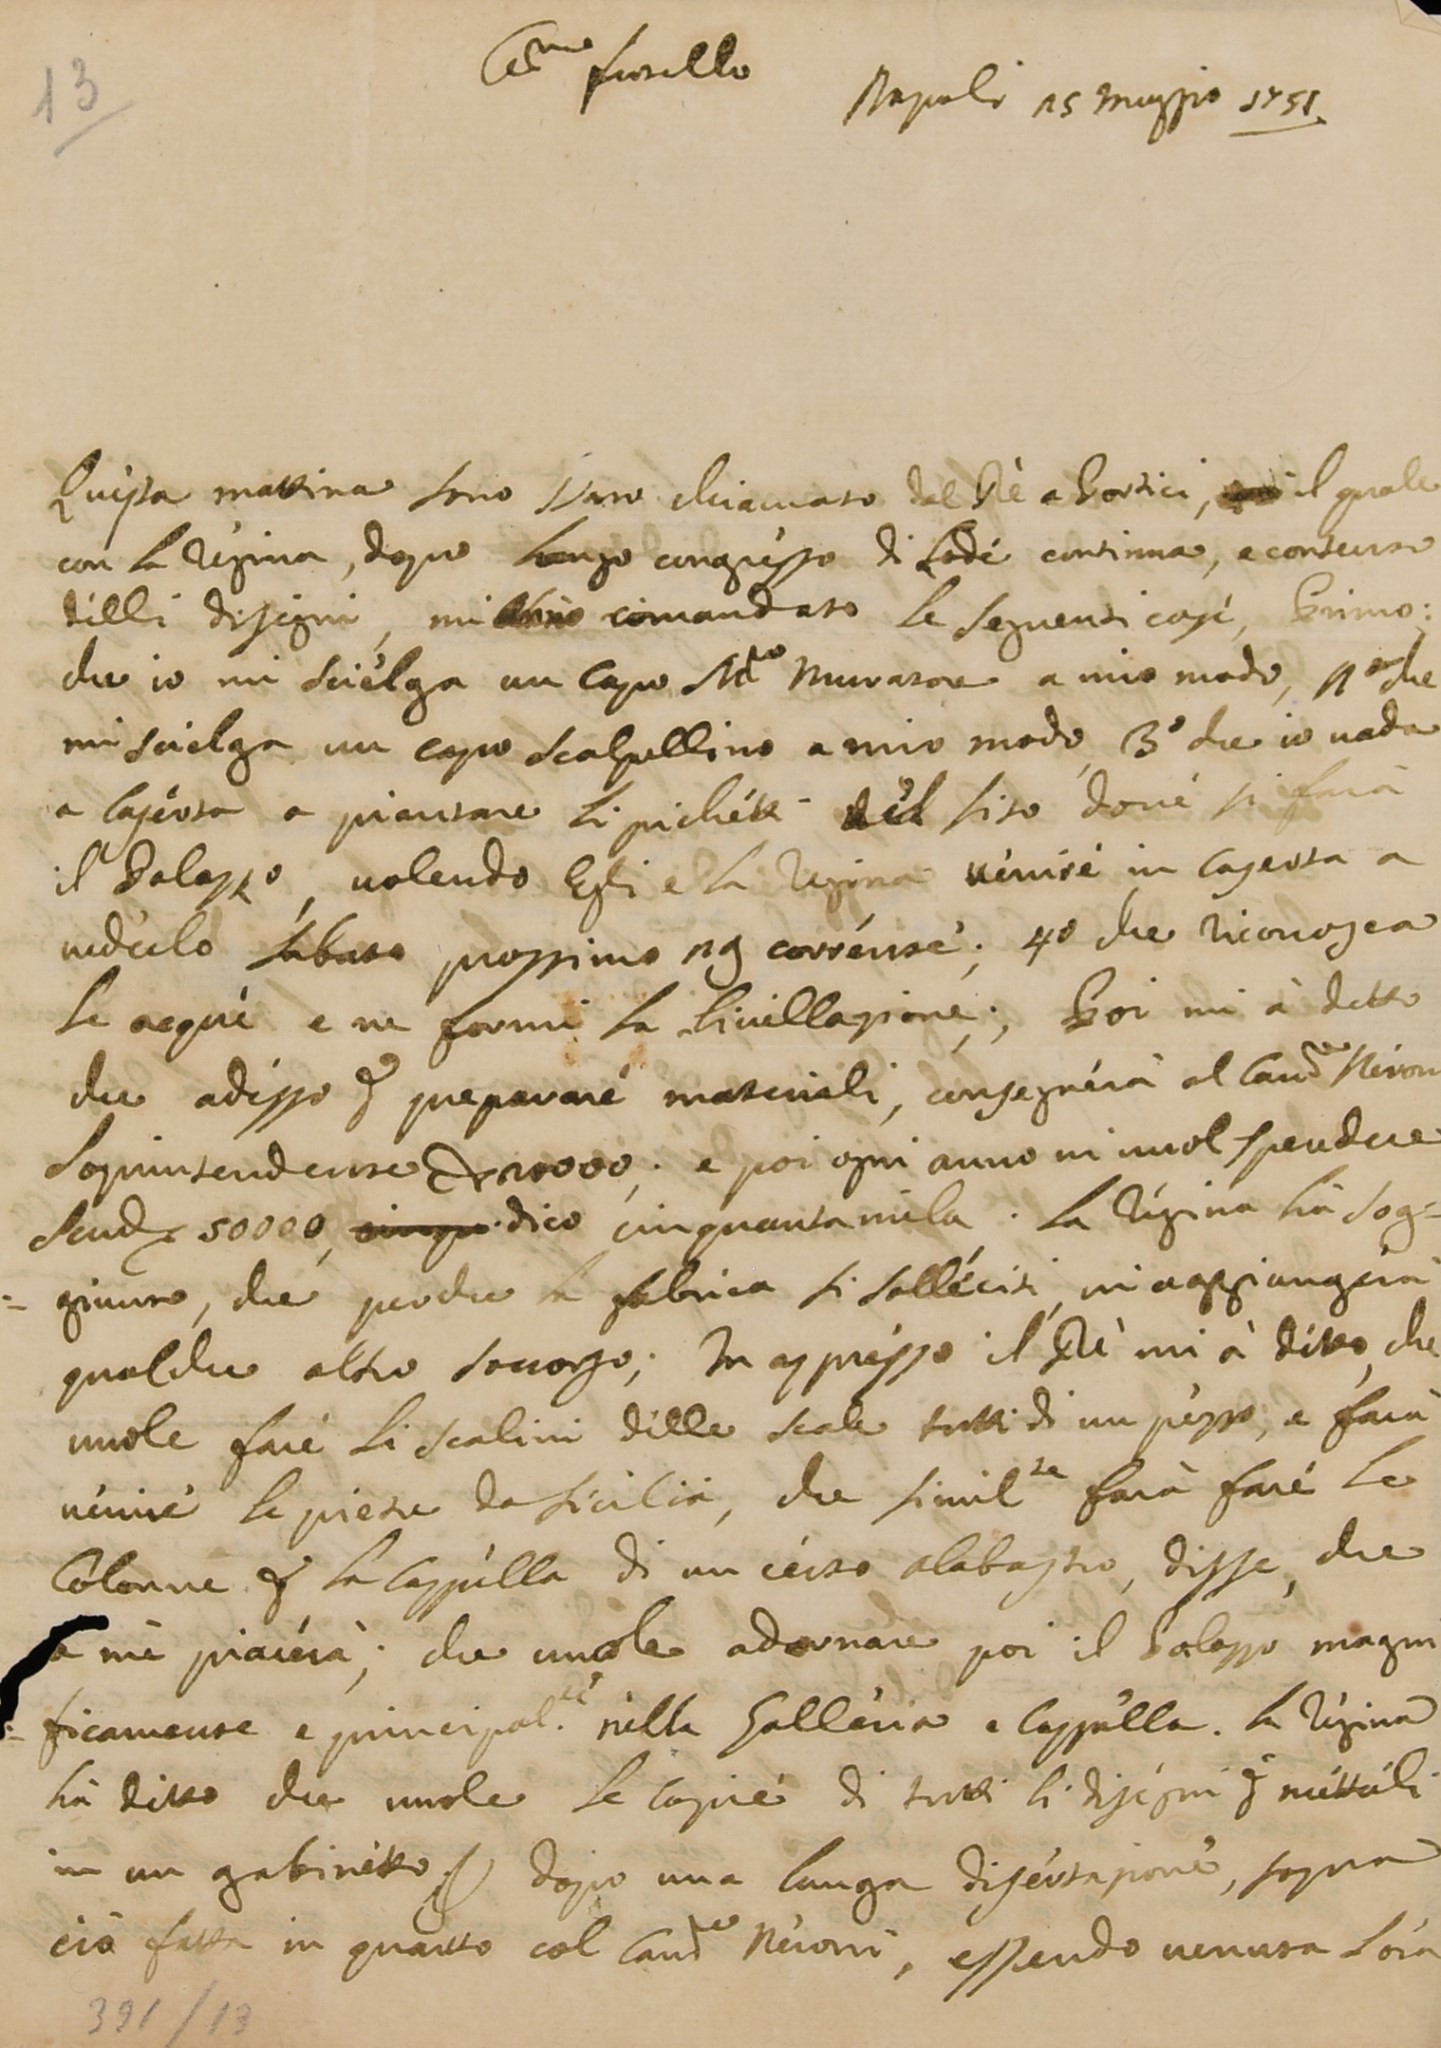 13
Car.mo fratello
Napoli 15 Maggio 1751
Questa mattina sono stato chiamato dal Rè a Portici, il quale
con la Regina, dopo lungo congresso di lode continua, e contenro
delli disegni, mi comandato le seguenti cose, Primo:
che io mi scielga un Capo M.ro Muratore a mio modo, 2.o che
mi scielga un capo scalpellino a mio modo, 3.o che io vada
a Caserta a piantare li pichetti del sito dove si farà
il Palazzo, volendo Egli e la Regina venire in Caserta a
vederlo sabato prossimo 29 corrente; 4.o che riconosca
le acque e ne formi la livellazione; Poi mi à detto
che adesso p preparare materiali, consegnerà al Cav.re Neroni
Soprintendente 20000; e poi ogni anno vi vuol spendere
Scudi 50000, cinque dico cinquantamila. La Regina hà sog=
=giunto, che perche la fabrica si solleciti, vi aggiungerà
qualche altro soccorso; In appresso il Rè mi à detto, che
vuole fare li scalini delle scale tutti di un pezzo, e farà
venire le pietre da Sicilia, che simil.te farà fare le
Colonne p la Cappella di un certo alabastro, disse, che
a me piacerà; che vuole adornare poi il Palazzo magni
=ficamente e principal.te nella Galleria e Cappella. La Regina
hà detto che vuole le copie di tutti li disegni p metterli
in un gabinetto dopo una lunga disertazione, sopra
ciò fatta in quarto col Cav.re Neroni, essendo venuta l'ora
391/13